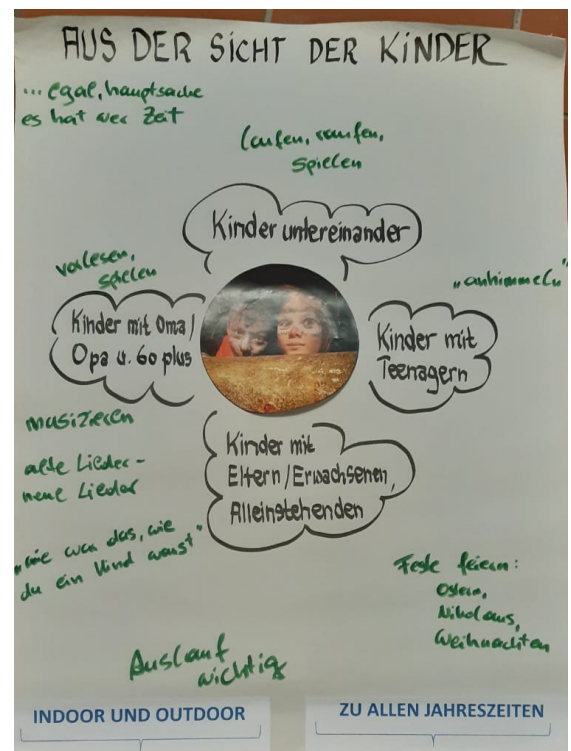 AUS DER SICHT DER KINDER
... egal, hauptsache
es hat wer Zeit
laufen, raufen,
spielen
Kinder untereinander
vorlesen,
spielen
"anhimmeln"
Kinder mit Oma/
Opa u. 60 plus
Kinder mit
Teenagern
musizieren
alte Lieder –
neue Lieder
Kinder mit
Eltern/Erwachsenen,
Alleinstehenden
"wie war das, wie
du ein Kind warst"
Feste feiern:
Ostern,
Nikolaus,
Weihnachten
Auslauf
wichtig
INDOOR UND OUTDOOR
ZU ALLEN JAHRESZEITEN